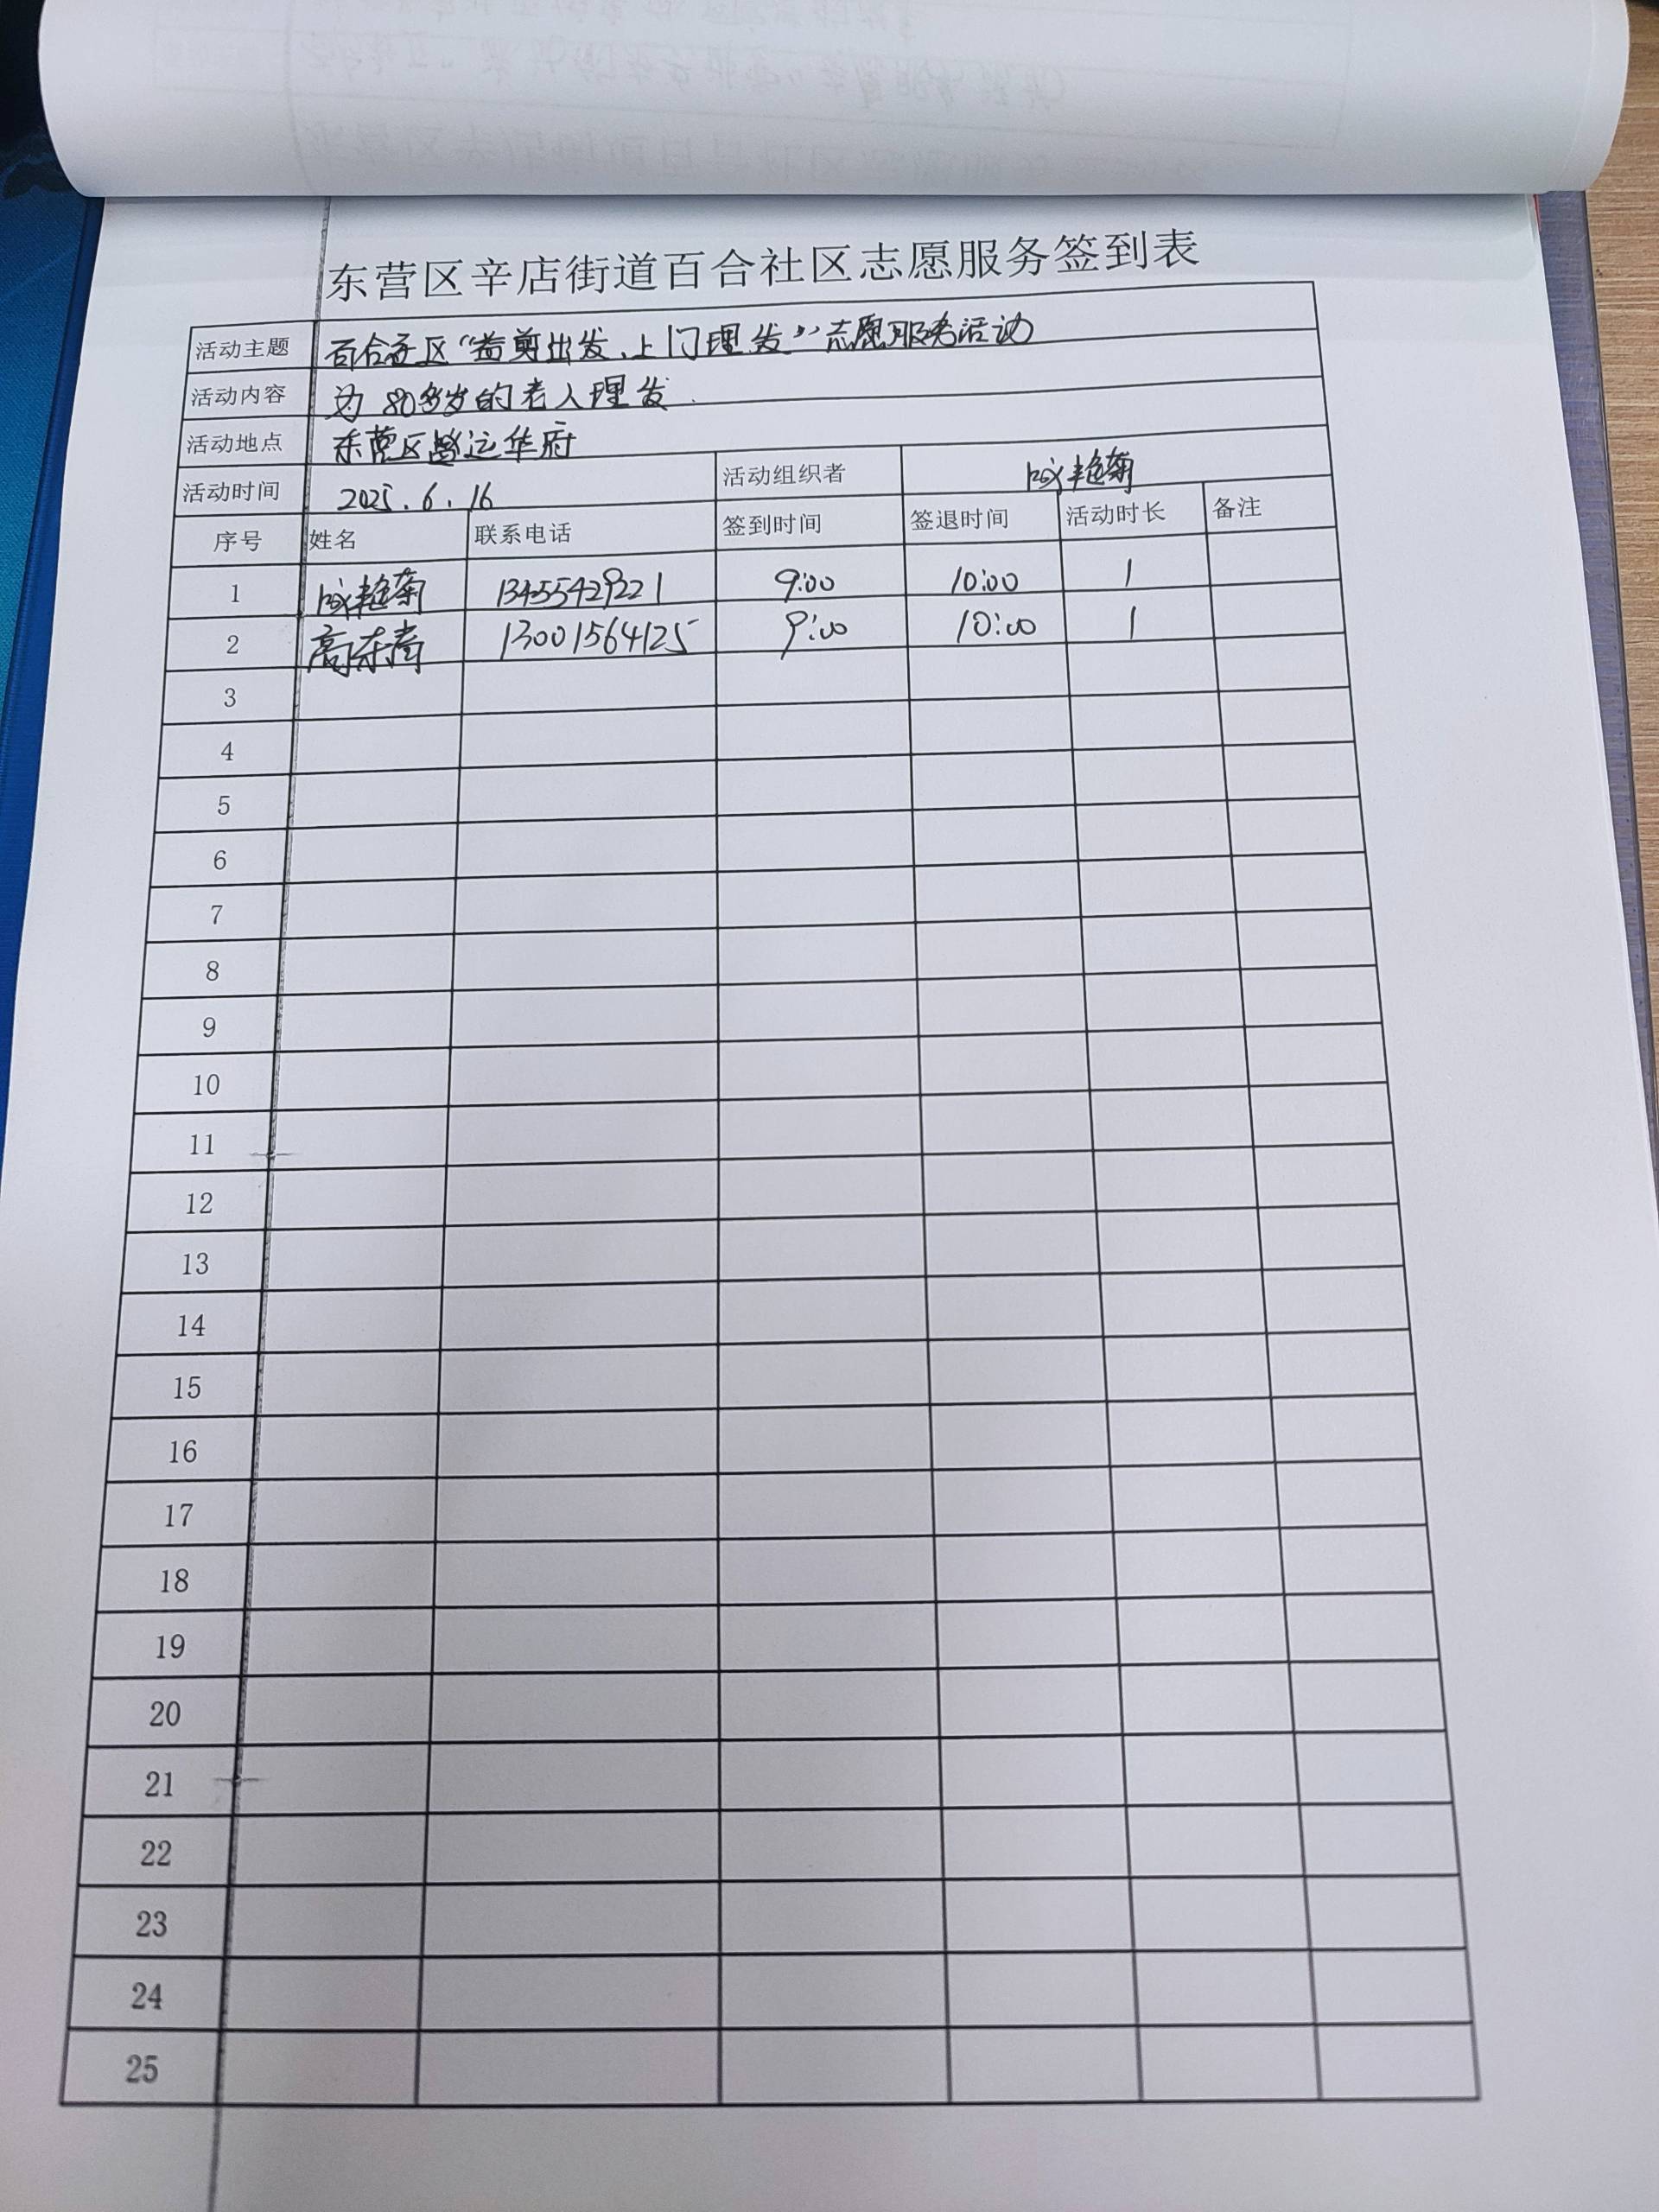 东营区辛店街道百合社区志愿服务签到表
活动主题 百合社区“益剪出发、上门理发”志愿服务活动
活动内容 为80多岁的老人理发.
活动地点 东营区 运华府
活动时间 2025.6.16 活动组织者 艳菊
序号 姓名 联系电话 签到时间 签退时间 活动时长 备注
1 艳菊 13455429221 9:00 10:00 1
2 高东青 13001564125 9:00 10:00 1
3
4
5
6
7
8
9
10
11
12
13
14
15
16
17
18
19
20
21
22
23
24
25